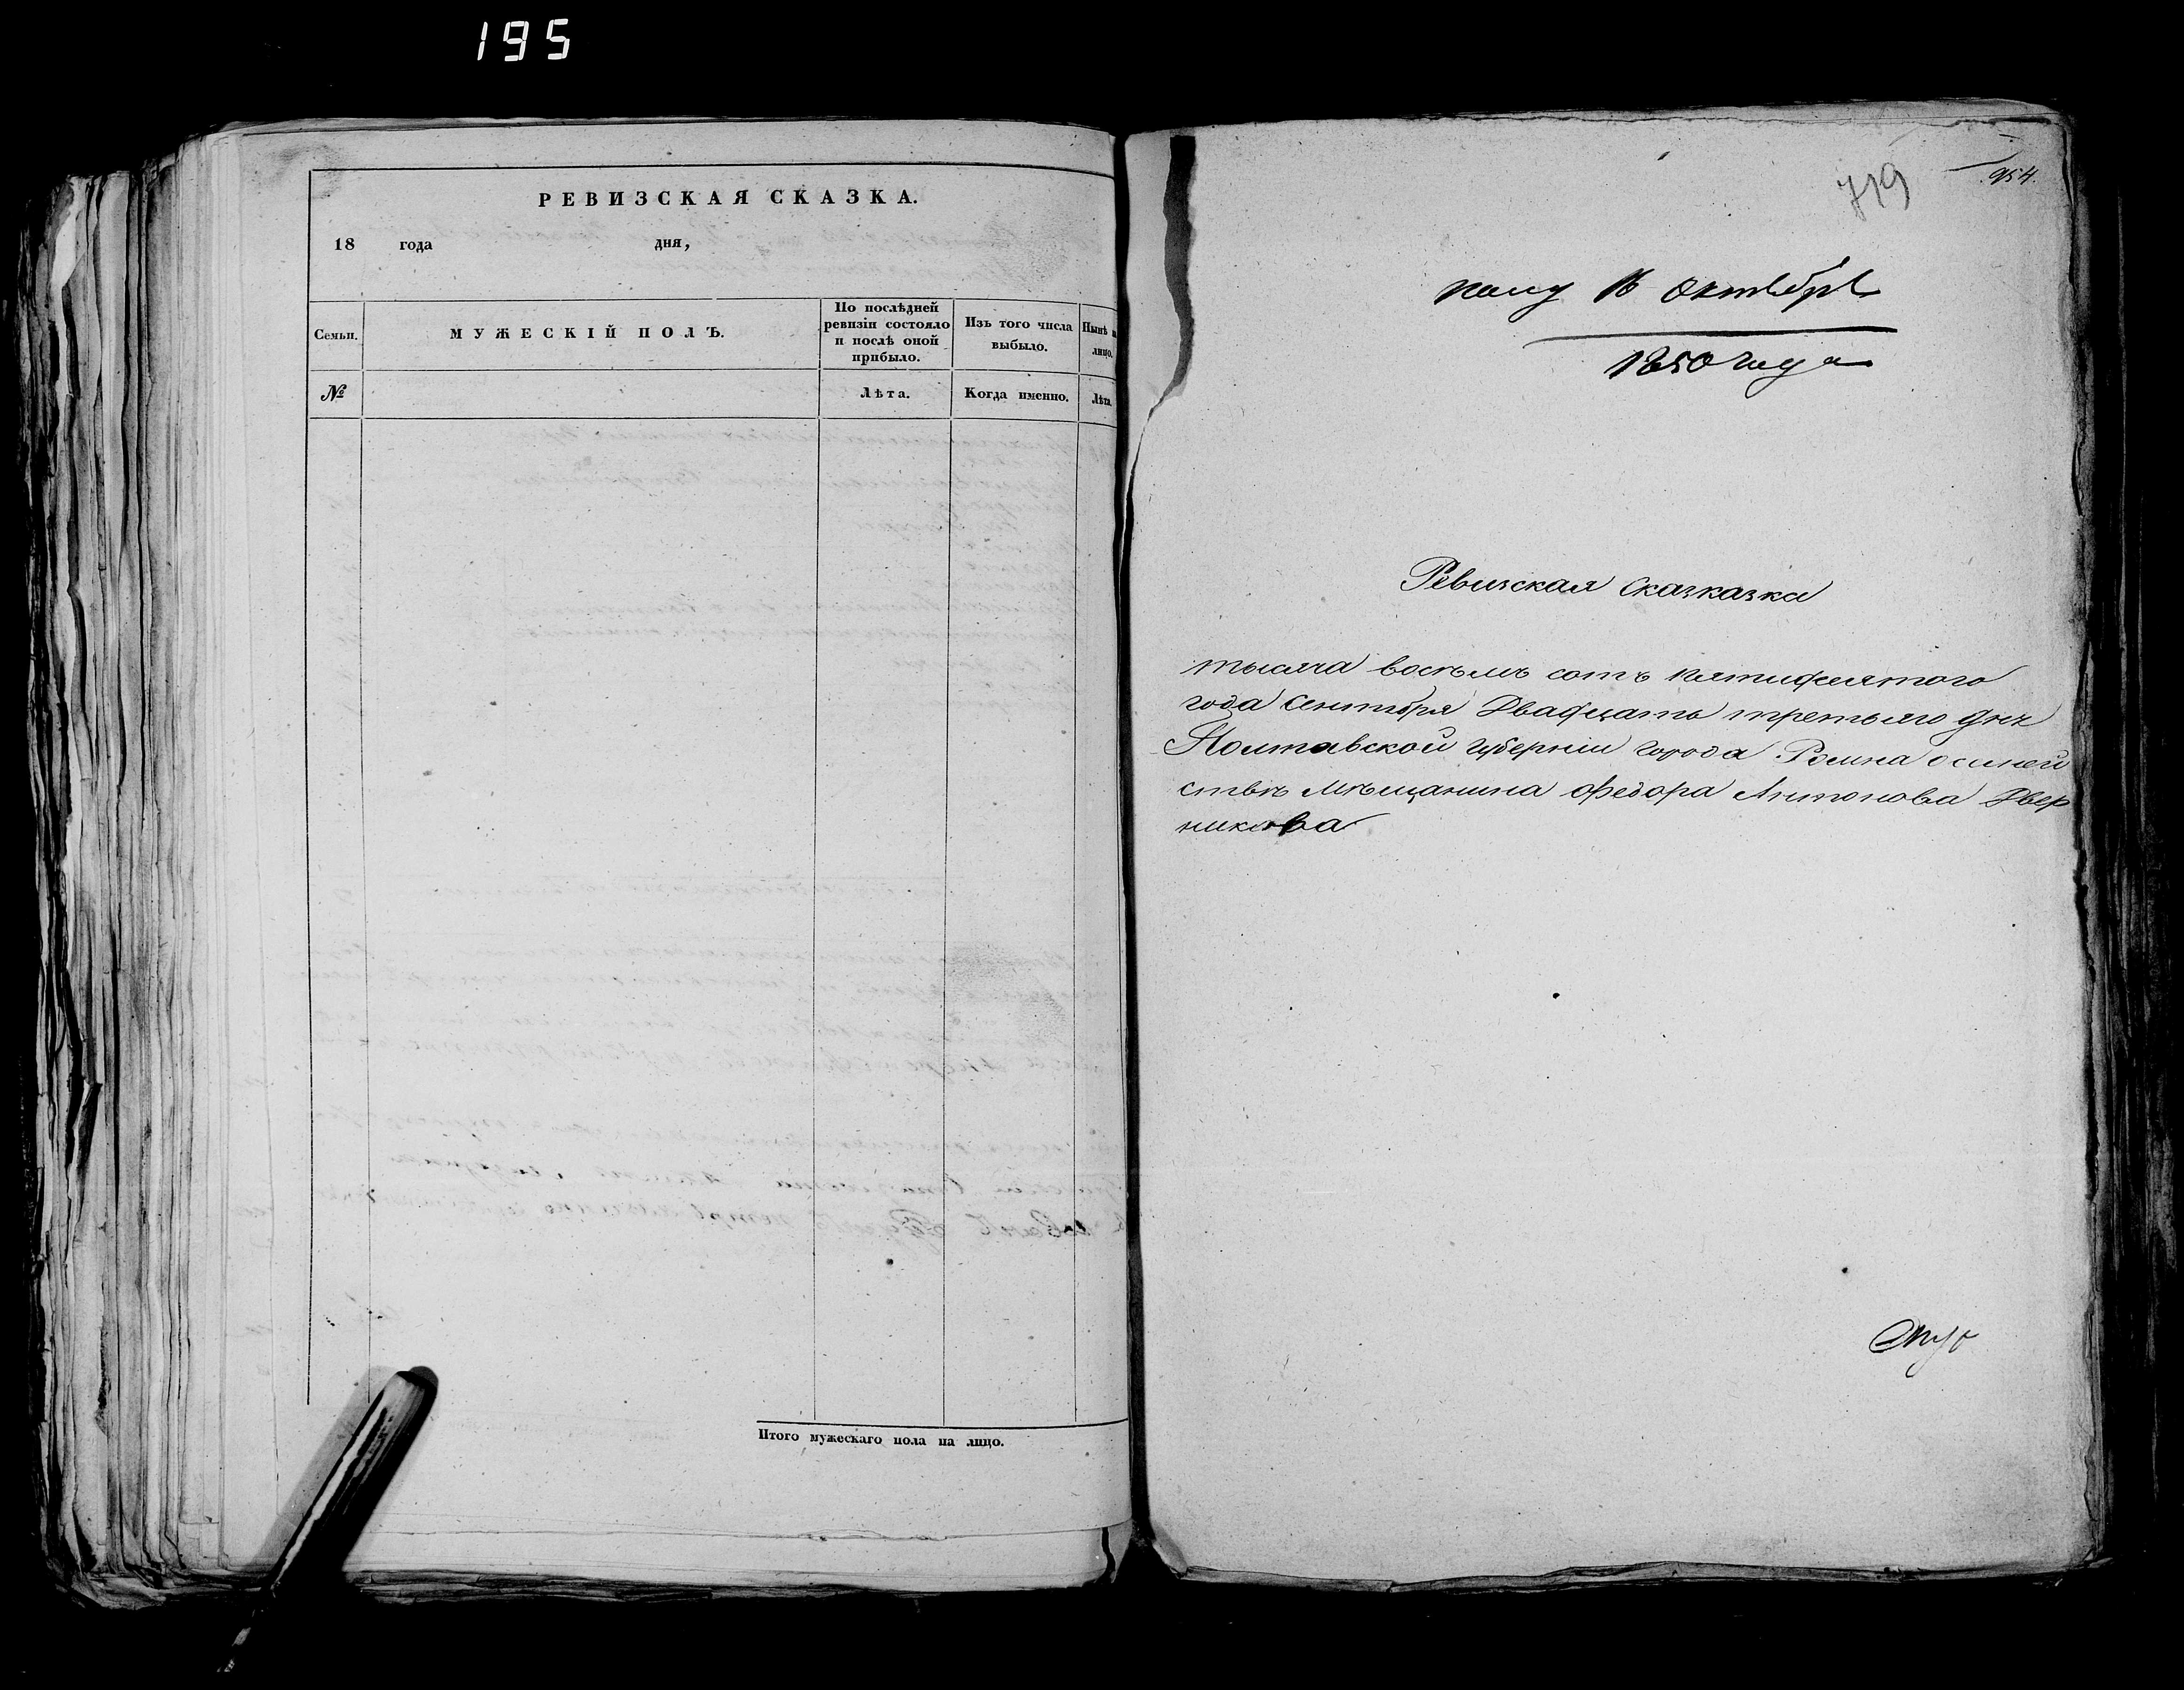 195
РЕВИЗСКАЯ СКАЗКА.
18 года дня,
Семьи.
МУЖЕСКІЙ ПОЛЪ.
По послѣдней ревизіи состояло и послѣ оной прибыло.
Изъ того числа выбыло.
Нынѣ на лицо.
№
Лѣта.
Когда именно.
Лѣта.
Итого мужескаго пола на лицо.
719
954.
16 октября
1850 года
Ревизская Сказказка
тысяча восемь сотъ пятидесятого
года Сентября Двадцать третьяго дня
Полтавской губерніи города Ромна о семей
ствѣ мѣщанина Федора Антонова Двер
никова